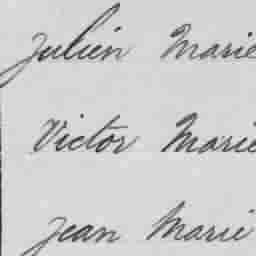 Julien Marie
Victor Marie
Jean Marie